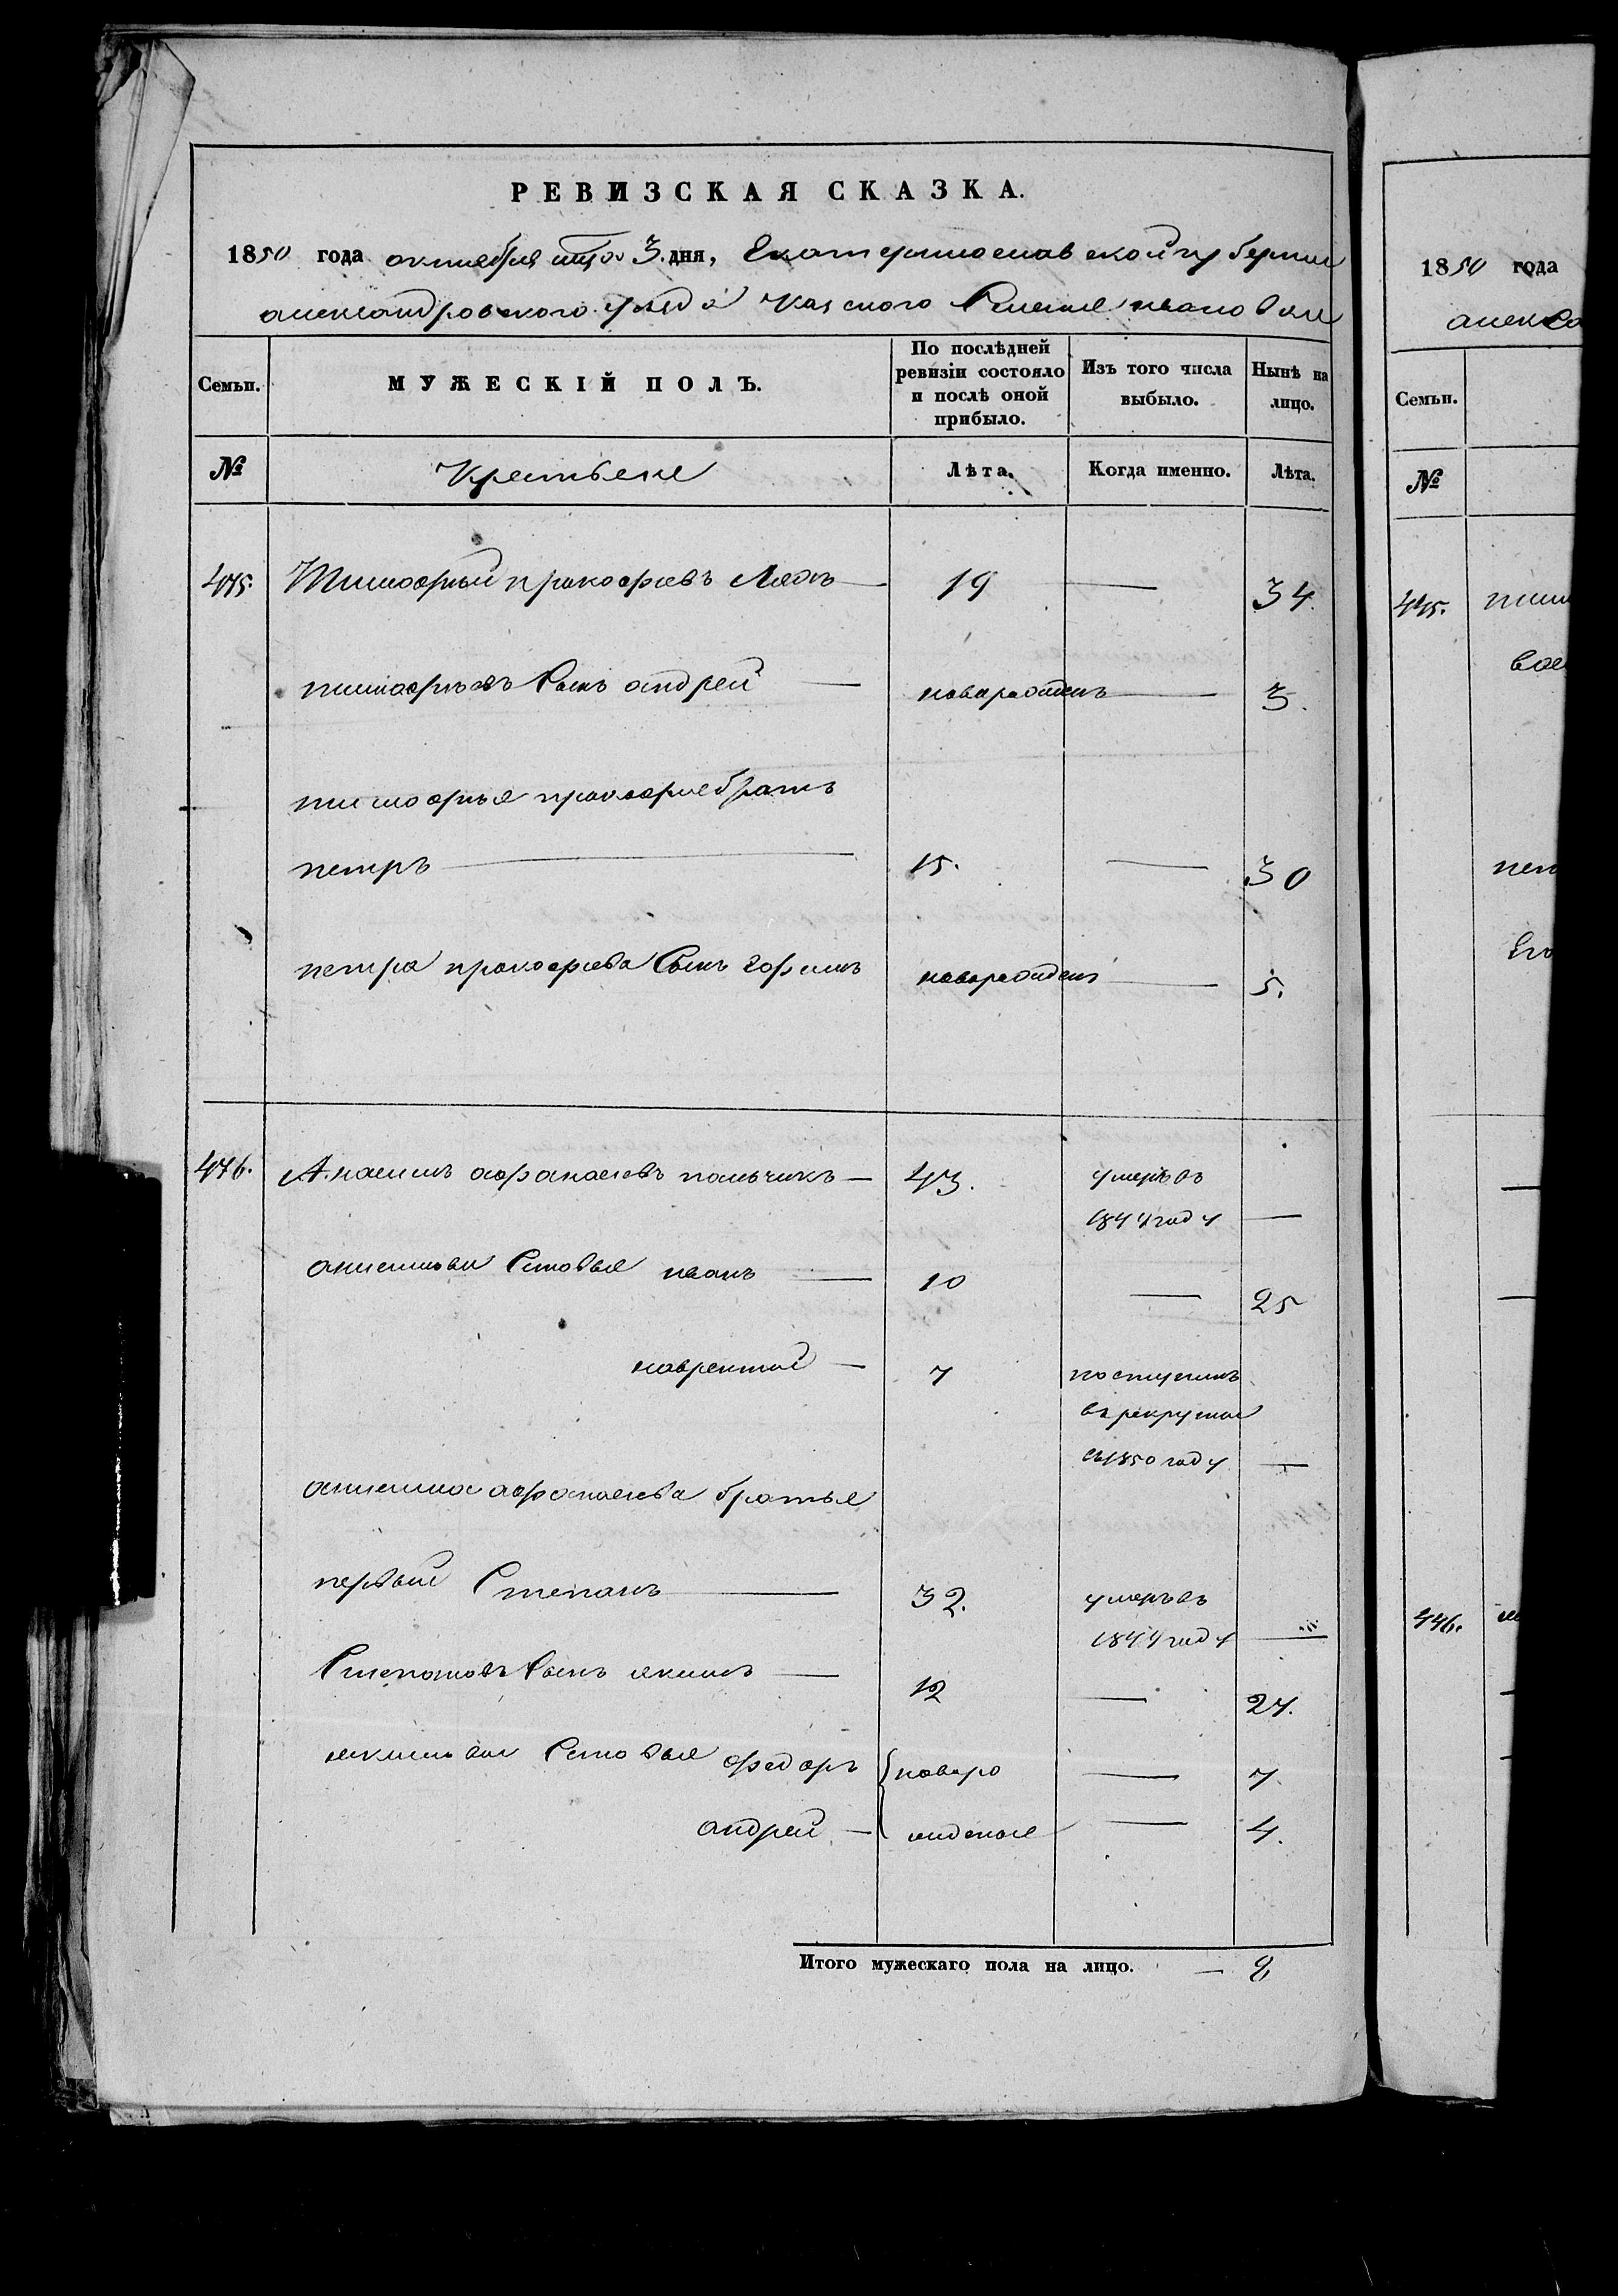 РЕВИЗСКАЯ СКАЗКА.
1850 года октября 3 дня, Екатеринославской губернии
александровского уезда Казеного Селения ивановки
Семьи.
МУЖЕСКІЙ ПОЛЪ.
По послѣдней ревизіи состояло и послѣ оной прибыло.
Изъ того числа выбыло.
Нынѣ на лицо.
№
Крестьяне
Лѣта.
Когда именно.
Лѣта.
475. Тимофей прокофіевъ — 19 — 34.
тимофѣевъ Сынъ андрей — новорожденъ — 3.
тимофея прокофіе братъ
петръ — 15. — 30
петра прокофіева Сынъ ефимъ новорожденъ — 5.
476. Анисимъ афанасіевъ пальчикъ — 43. умеръ въ
1844 году —
анисимовы Сыновья иванъ — 10 — 25
лаврентий — 7 поступилъ
въ рекруты
въ 1850 году —
анисима афанасіева братья
первый Степанъ — 32. умеръ въ
1844 году —
Степановъ Сынъ якимъ — 12 — 27.
якимовы Сыновья федоръ новоро — 7.
андрей — жденые — 4.
Итого мужескаго пола на лицо. — 8
1850 года
алекса
Семьи.
№
475.
пет
Его
476.